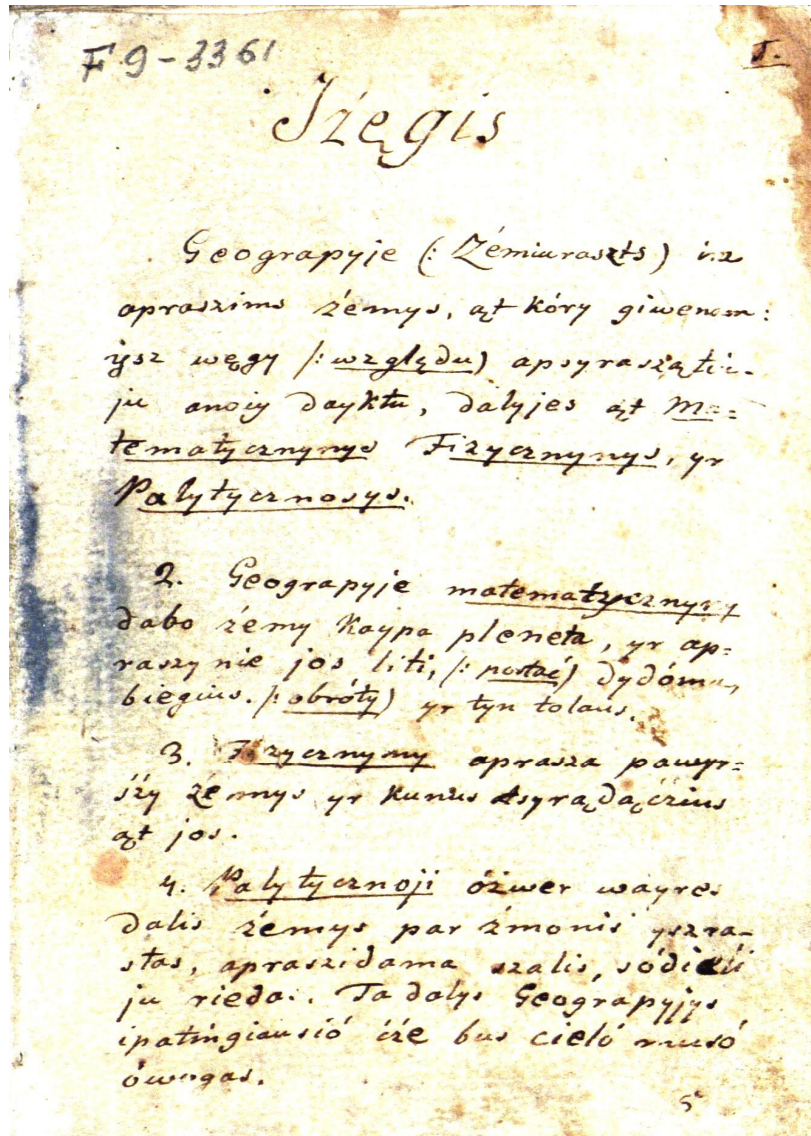 F 9 - 3361
1.
Jźęgis
Geograpyje (: Żemiuraszts) ira
apraszims źemys, ąt kóry giwenom:
ysz węgy /: względu) apsyrasząti-
ju anoiy dayktu, dalyjes ąt Ma=
tematycznynys Fizycznynys, yr
Palytycznosys.
2. Geograpyje matematycznyny
dabo źemy kaypa pleneta, yr ap=
raszynie jos liti, /: postać) dydóma,
biegius. /: obróty) yr tyn tolaus.
3. Fizycznyny aprasza pawyr=
szy źemys yr kunus asyrądączius
ąt jos.
4. Palytycznoji óżwer wayres
dalis źemys par źmonis yszra-
stas, apraszidama szalis, sódieli
ju rieda. Ta dalys Geograpyjys
ipatingiausió cze bus cieló musó
ówogas.